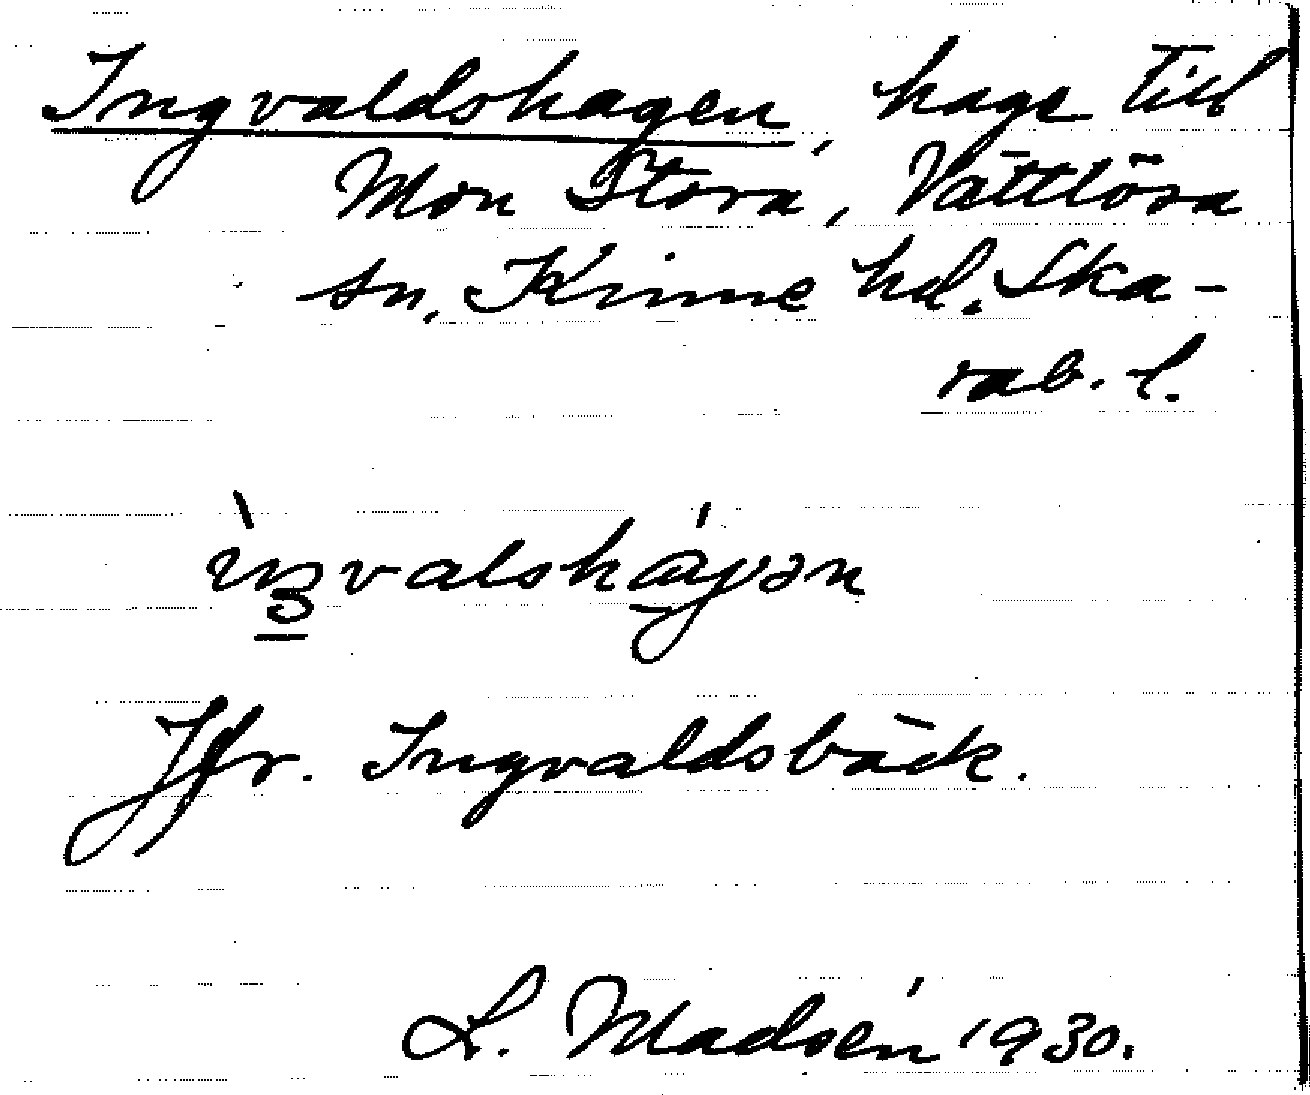 Ingvaldshagen, hage till
Mon Stora, Vättlösa
sn, Kinne hd. Ska-
rab. l.
Jfr. Ingvaldsbäck.
L. Madsén 1930.